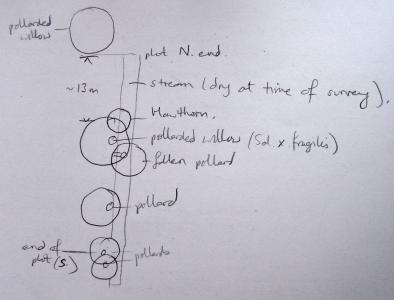 pollarded
willow
plot N. end.
~13m
stream (dry at time of survey).
Hawthorn.
pollarded willow (Sal. x fragilis)
fallen pollard
pollard
end of
plot (S.)
pollards